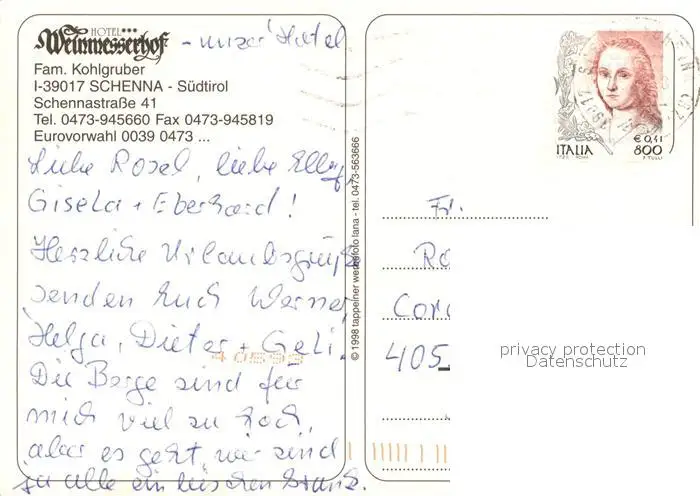 HOTEL***
Weinmesserhof - unser Hotel
Fam. Kohlgruber
I-39017 SCHENNA - Südtirol
Schennastraße 41
Tel. 0473-945660 Fax 0473-945819
Eurovorwahl 0039 0473 ...
Liebe Rosel, liebe Elly,
Gisela + Eberhard!
Herzliche Urlaubsgrüße
senden Euch Werner,
Helga, Dieter + Geli.
40593
Die Berge sind für
mich viel zu hoch,
aber es geht, wir sind
ja alle ein bischen krank.
© 1998 tappeiner werbefoto lana - tel. 0473-563666
€ 0,41
ITALIA 800
Fr.
Ro
Cor
405
privacy protection
Datenschutz